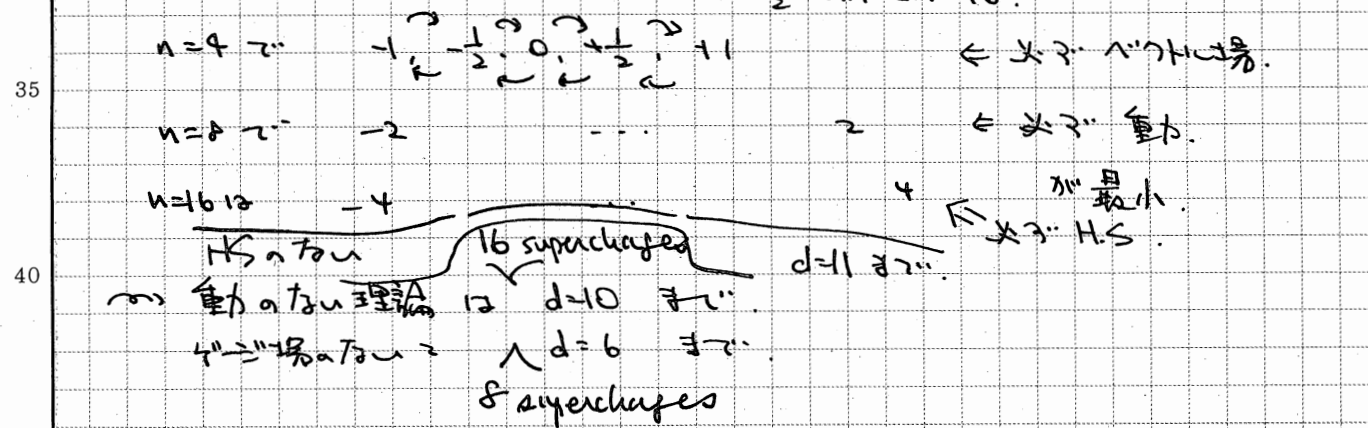 n=4で -1, -1/2, 0, +1/2, +1 ← 必ず ベクトル場.
35
n=8で -2 ... 2 ← 必ず 重力.
n=16は -4 ... 4 が最小.
← 必ず H.S.
HSのない 16 supercharges d=11 まで.
40
〜〜> 重力のない理論 は d=10 まで.
ゲージ場のない d=6 まで.
8 supercharges